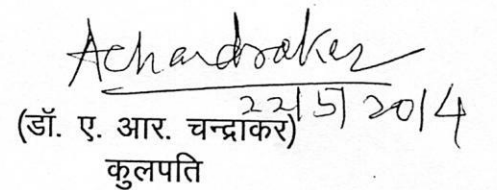 Achandraker
22/5/2014
(डॉ. ए. आर. चन्द्राकर)
कुलपति